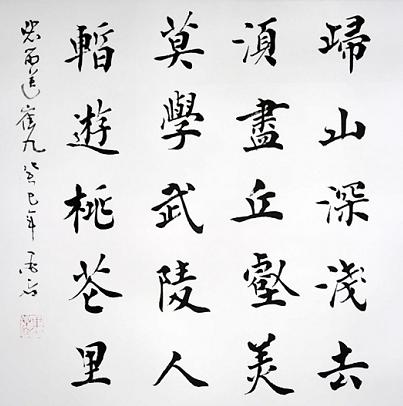 歸山深淺去
湏盡丘壑美
莫學武陵人
暫遊桃花里
裴迪送崔九 癸巳年